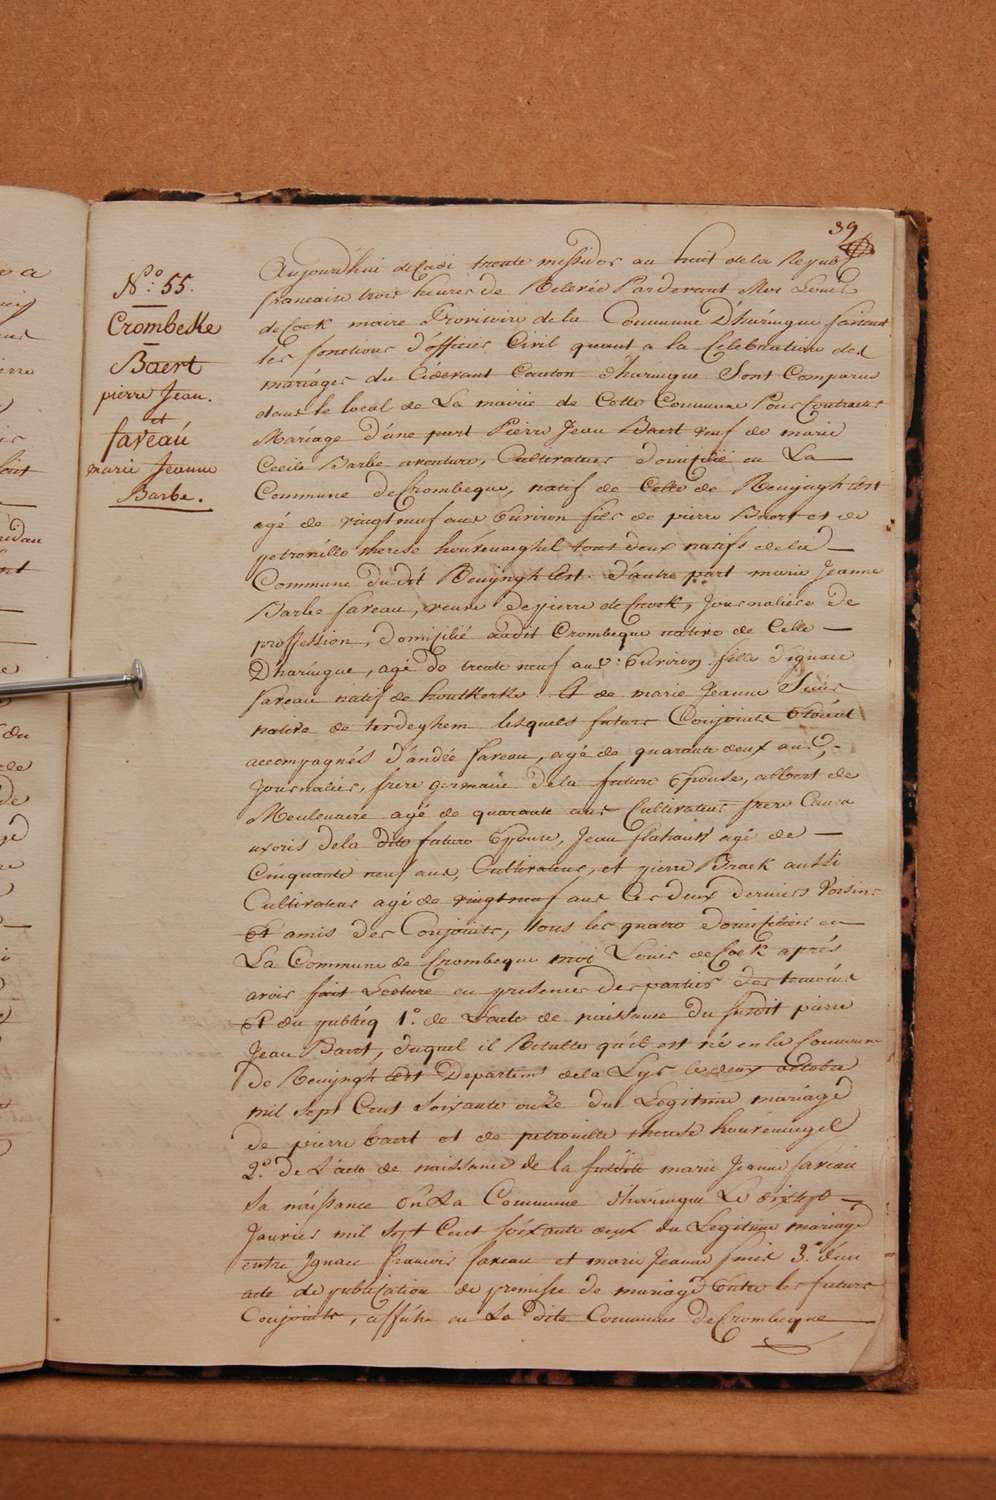 39
N.o 55.
Crombeke
Baert
pierre Jean.
et
fareau
marie Jeanne
Barbe.
Aujourd'hui decadi trente messidor an huit de la Repub
francaise trois heures de Relevée Pardevant Moi Louis
deCock maire Provisoire de la Commune D'haringue faisant
les fonctions d'officier Civil quant a la Celebration des
mariages du Cidevant Canton d'haringue Sont Comparu
dans le local de La mairie de Cette Commune Pour Contracter
Mariage d'une part Pierre Jean Baert veuf de marie
Cecile Barbe Cultivateur domicilié en La
Commune deCrombeque, natif de Celle de Reninghelst
agé de vingt neuf ans Environ fils de pierre Baert et de
petronille therese tous deux natifs de la
Commune du dit Reninghelst. d'autre part marie Jeanne
Barbe fareau, veuve de pierre de Crock, Journaliere de
proffession, domicilié audit Crombeque native de Celle
D'haringue, agé de trente neuf ans Environ fille d'ignace
fareau natif de houtkerke Et de marie Jeanne
native de terdeghem lesquels futurs Conjoints Etoient
accompagnés d'andré fareau, agé de quarante deux ans,
Journalier, frere germain de la future Epouse, albert de
Meulenaire agé de quarante ans Cultivateur frere Causa
uxoris dela dite future Epouse, Jean flahaut agé de
Cinquante neuf ans, Cultivateur, et pierre Brack aussi
Cultivateur agé de vingt neuf ans Les deux derniers Voisins
Et amis des Conjoints, tous les quatre domiciliés en
La Commune de Crombeque moi Louis deCock après
avoir fait Lecture en presence des parties des temoins
Et du publicq 1.o de L'acte de naissance du susdit pierre
Jean Baert, duquel il Resulte qu'il est né en la Commune
De Reninghelst Departemt dela Lys le deux octobre
mil sept Cent soixante onze du Legitime mariage
de pierre baert et de petronille therese
2.o de L'acte de naissance de la marie Jeanne fareau
Sa naissance en La Commune d'haringue Le dix sept
Janvier mil sept Cent soixante deux du Legitime mariage
entre Ignace francois fareau et marie Jeanne 3.o d'un
acte de publication de promisse de mariage Entre les futurs
Conjoints, affiche en La dite Commune deCrombeque